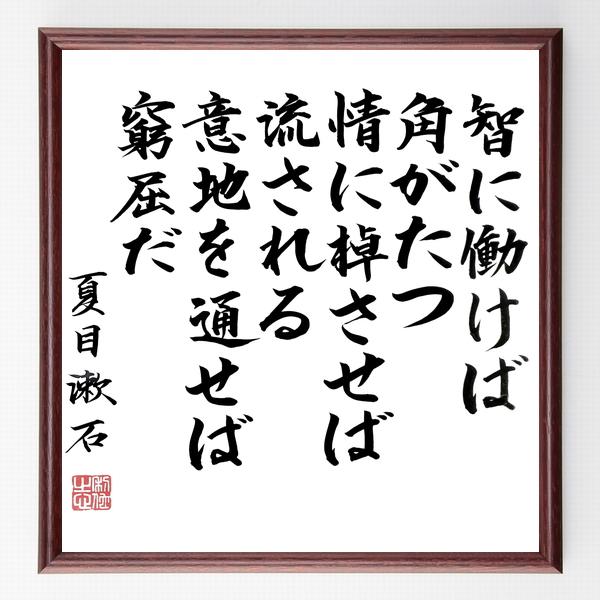 智に働けば
角がたつ
情に棹させば
流される
意地を通せば
窮屈だ
夏目漱石